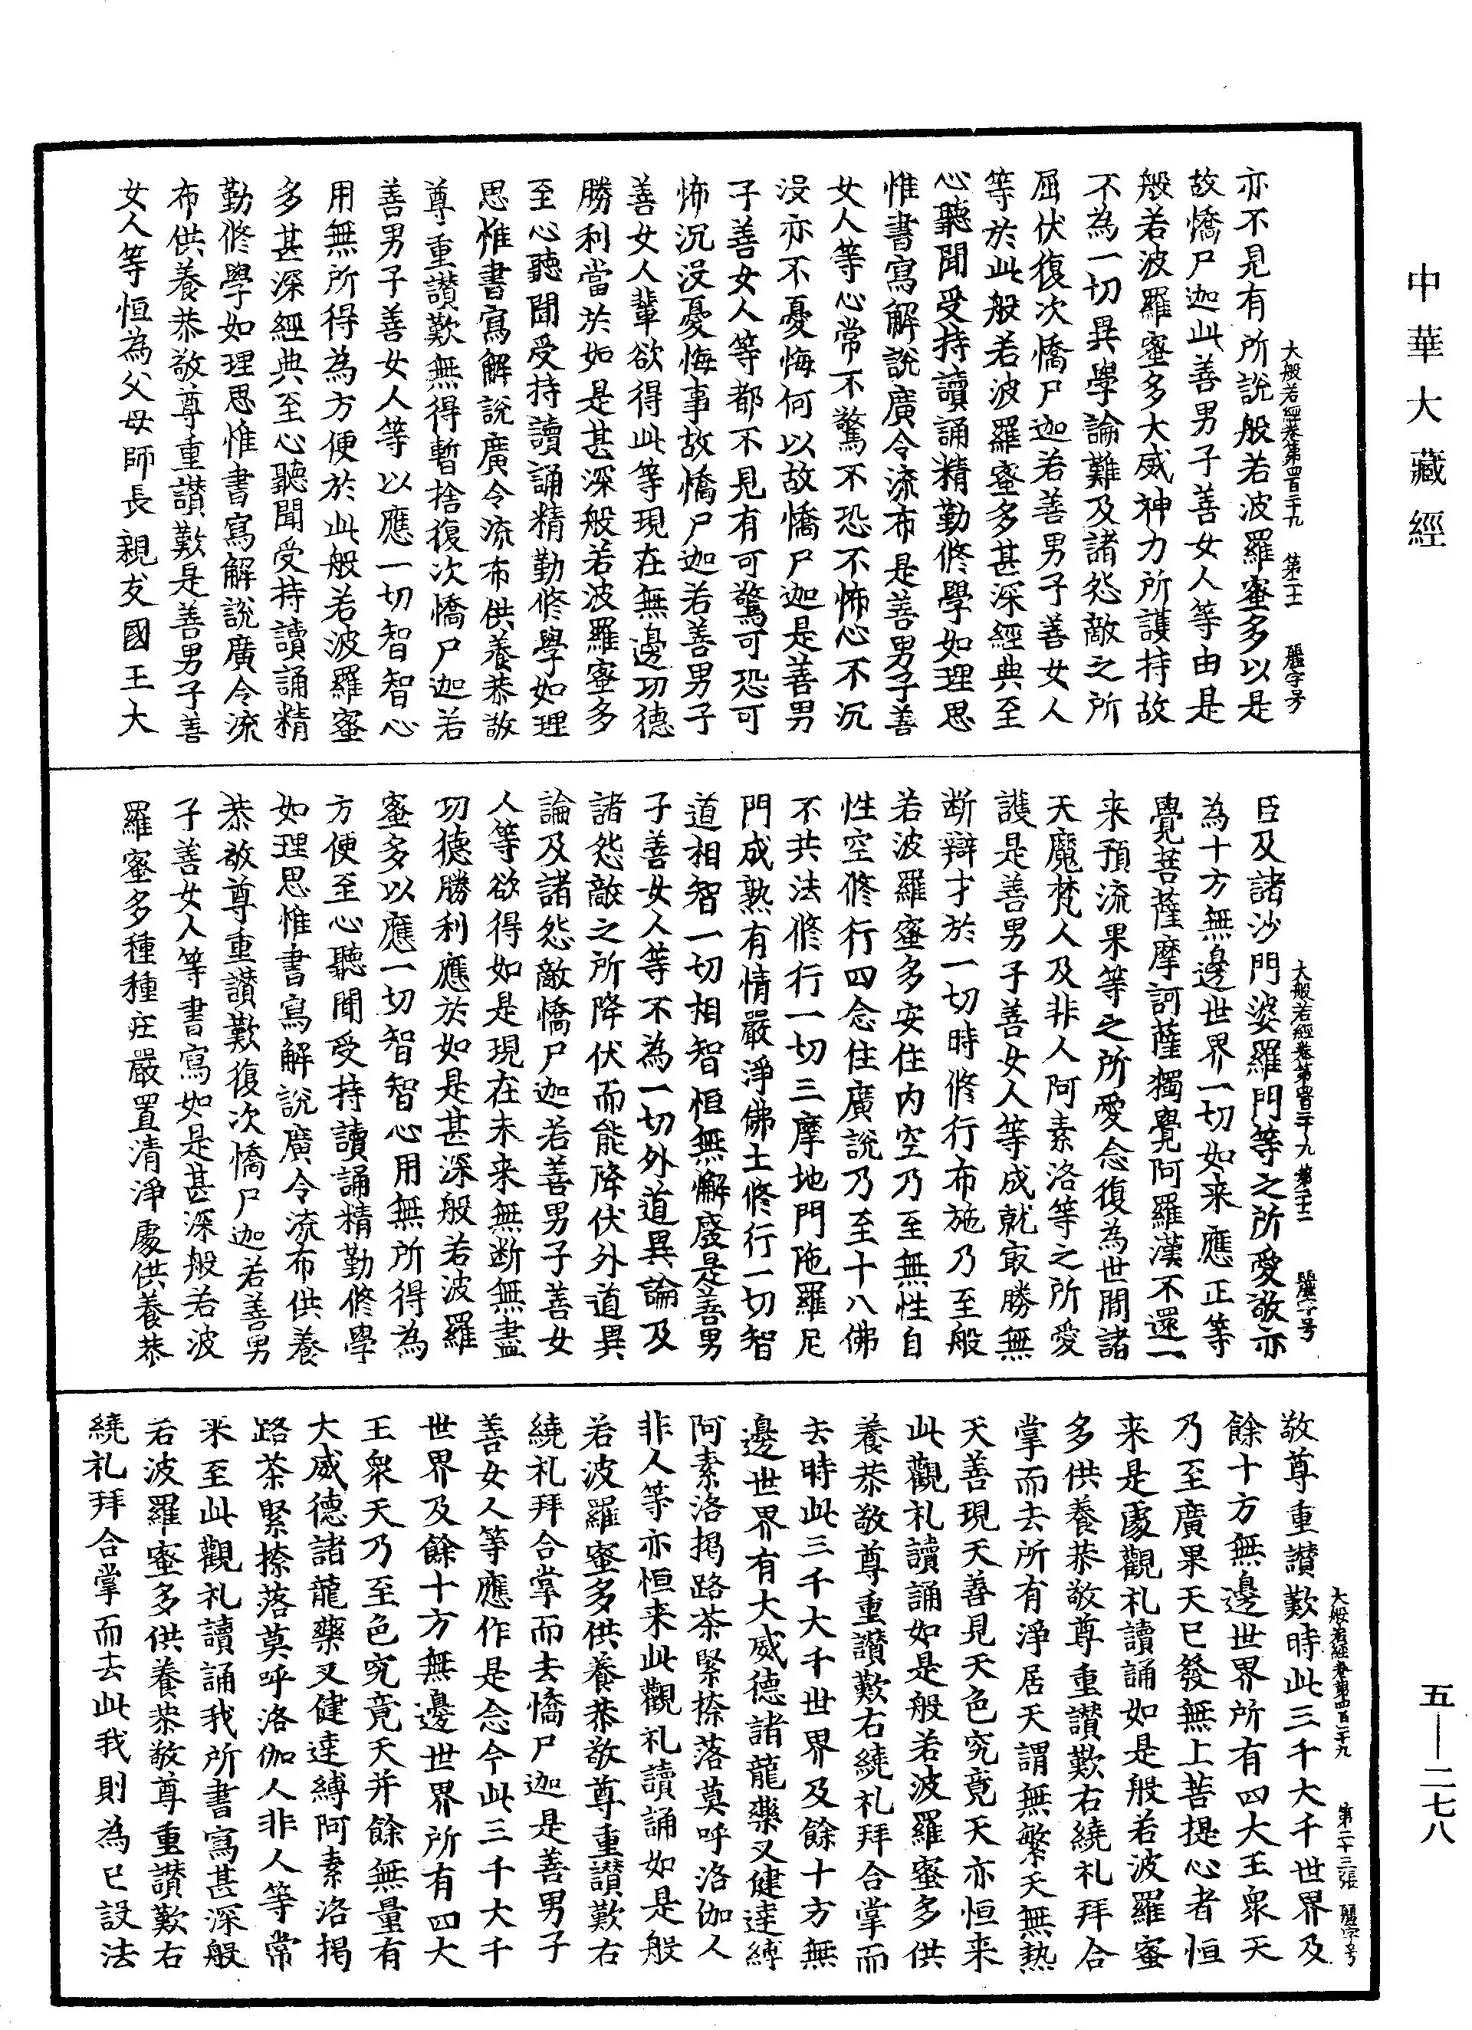 中華大藏經
大般若經卷第四百二十九 第二十一 麗字号
亦不見有所說般若波羅蜜多以是
故憍尸迦此善男子善女人等由是
般若波羅蜜多大威神力所護持故
不為一切異學論難及諸怨敵之所
屈伏復次憍尸迦若善男子善女人
等於此般若波羅蜜多甚深經典至
心聽聞受持讀誦精勤修學如理思
惟書寫解說廣令流布是善男子善
女人等心常不驚不恐不怖心不沉
沒亦不憂悔何以故憍尸迦是善男
子善女人等都不見有可驚可恐可
怖沉沒憂悔事故憍尸迦若善男子
善女人輩欲得此等現在無邊功德
勝利當於如是甚深般若波羅蜜多
至心聽聞受持讀誦精勤修學如理
思惟書寫解說廣令流布供養恭敬
尊重讚歎無得暫捨復次憍尸迦若
善男子善女人等以應一切智智心
用無所得為方便於此般若波羅蜜
多甚深經典至心聽聞受持讀誦精
勤修學如理思惟書寫解說廣令流
布供養恭敬尊重讚歎是善男子善
女人等恒為父母師長親友國王大
大般若經卷第四百二十九 第二十二 麗字号
臣及諸沙門婆羅門等之所愛敬亦
為十方無邊世界一切如来應正等
覺菩薩摩訶薩獨覺阿羅漢不還一
来預流果等之所愛念復為世間諸
天魔梵人及非人阿素洛等之所愛
護是善男子善女人等成就㝡勝無
断辯才於一切時修行布施乃至般
若波羅蜜多安住內空乃至無性自
性空修行四念住廣說乃至十八佛
不共法修行一切三摩地門陁羅尼
門成熟有情嚴淨佛土修行一切智
道相智一切相智恒無懈廢是善男
子善女人等不為一切外道異論及
諸怨敵之所降伏而能降伏外道異
論及諸怨敵憍尸迦若善男子善女
人等欲得如是現在未来無断無盡
功德勝利應於如是甚深般若波羅
蜜多以應一切智智心用無所得為
方便至心聽聞受持讀誦精勤修學
如理思惟書寫解說廣令流布供養
恭敬尊重讚歎復次憍尸迦若善男
子善女人等書寫如是甚深般若波
羅蜜多種種庄嚴置清淨處供養恭
大般若經卷第四百二十九 第二十三張 麗字号
敬尊重讚歎時此三千大千世界及
餘十方無邊世界所有四大王衆天
乃至廣果天已發無上菩提心者恒
来是處觀礼讀誦如是般若波羅蜜
多供養恭敬尊重讚歎右繞礼拜合
掌而去所有淨居天謂無繁天無熱
天善現天善見天色究竟天亦恒来
此觀礼讀誦如是般若波羅蜜多供
養恭敬尊重讚歎右繞礼拜合掌而
去時此三千大千世界及餘十方無
邊世界有大威德諸龍藥叉健達縛
阿素洛揭路荼緊捺落莫呼洛伽人
非人等亦恒来此觀礼讀誦如是般
若波羅蜜多供養恭敬尊重讚歎右
繞礼拜合掌而去憍尸迦是善男子
善女人等應作是念今此三千大千
世界及餘十方無邊世界所有四大
王衆天乃至色究竟天并餘無量有
大威德諸龍藥叉健達縛阿素洛揭
路荼緊捺落莫呼洛伽人非人等常
来至此觀礼讀誦我所書寫甚深般
若波羅蜜多供養恭敬尊重讚歎右
繞礼拜合掌而去此我則為已設法
五—二七八